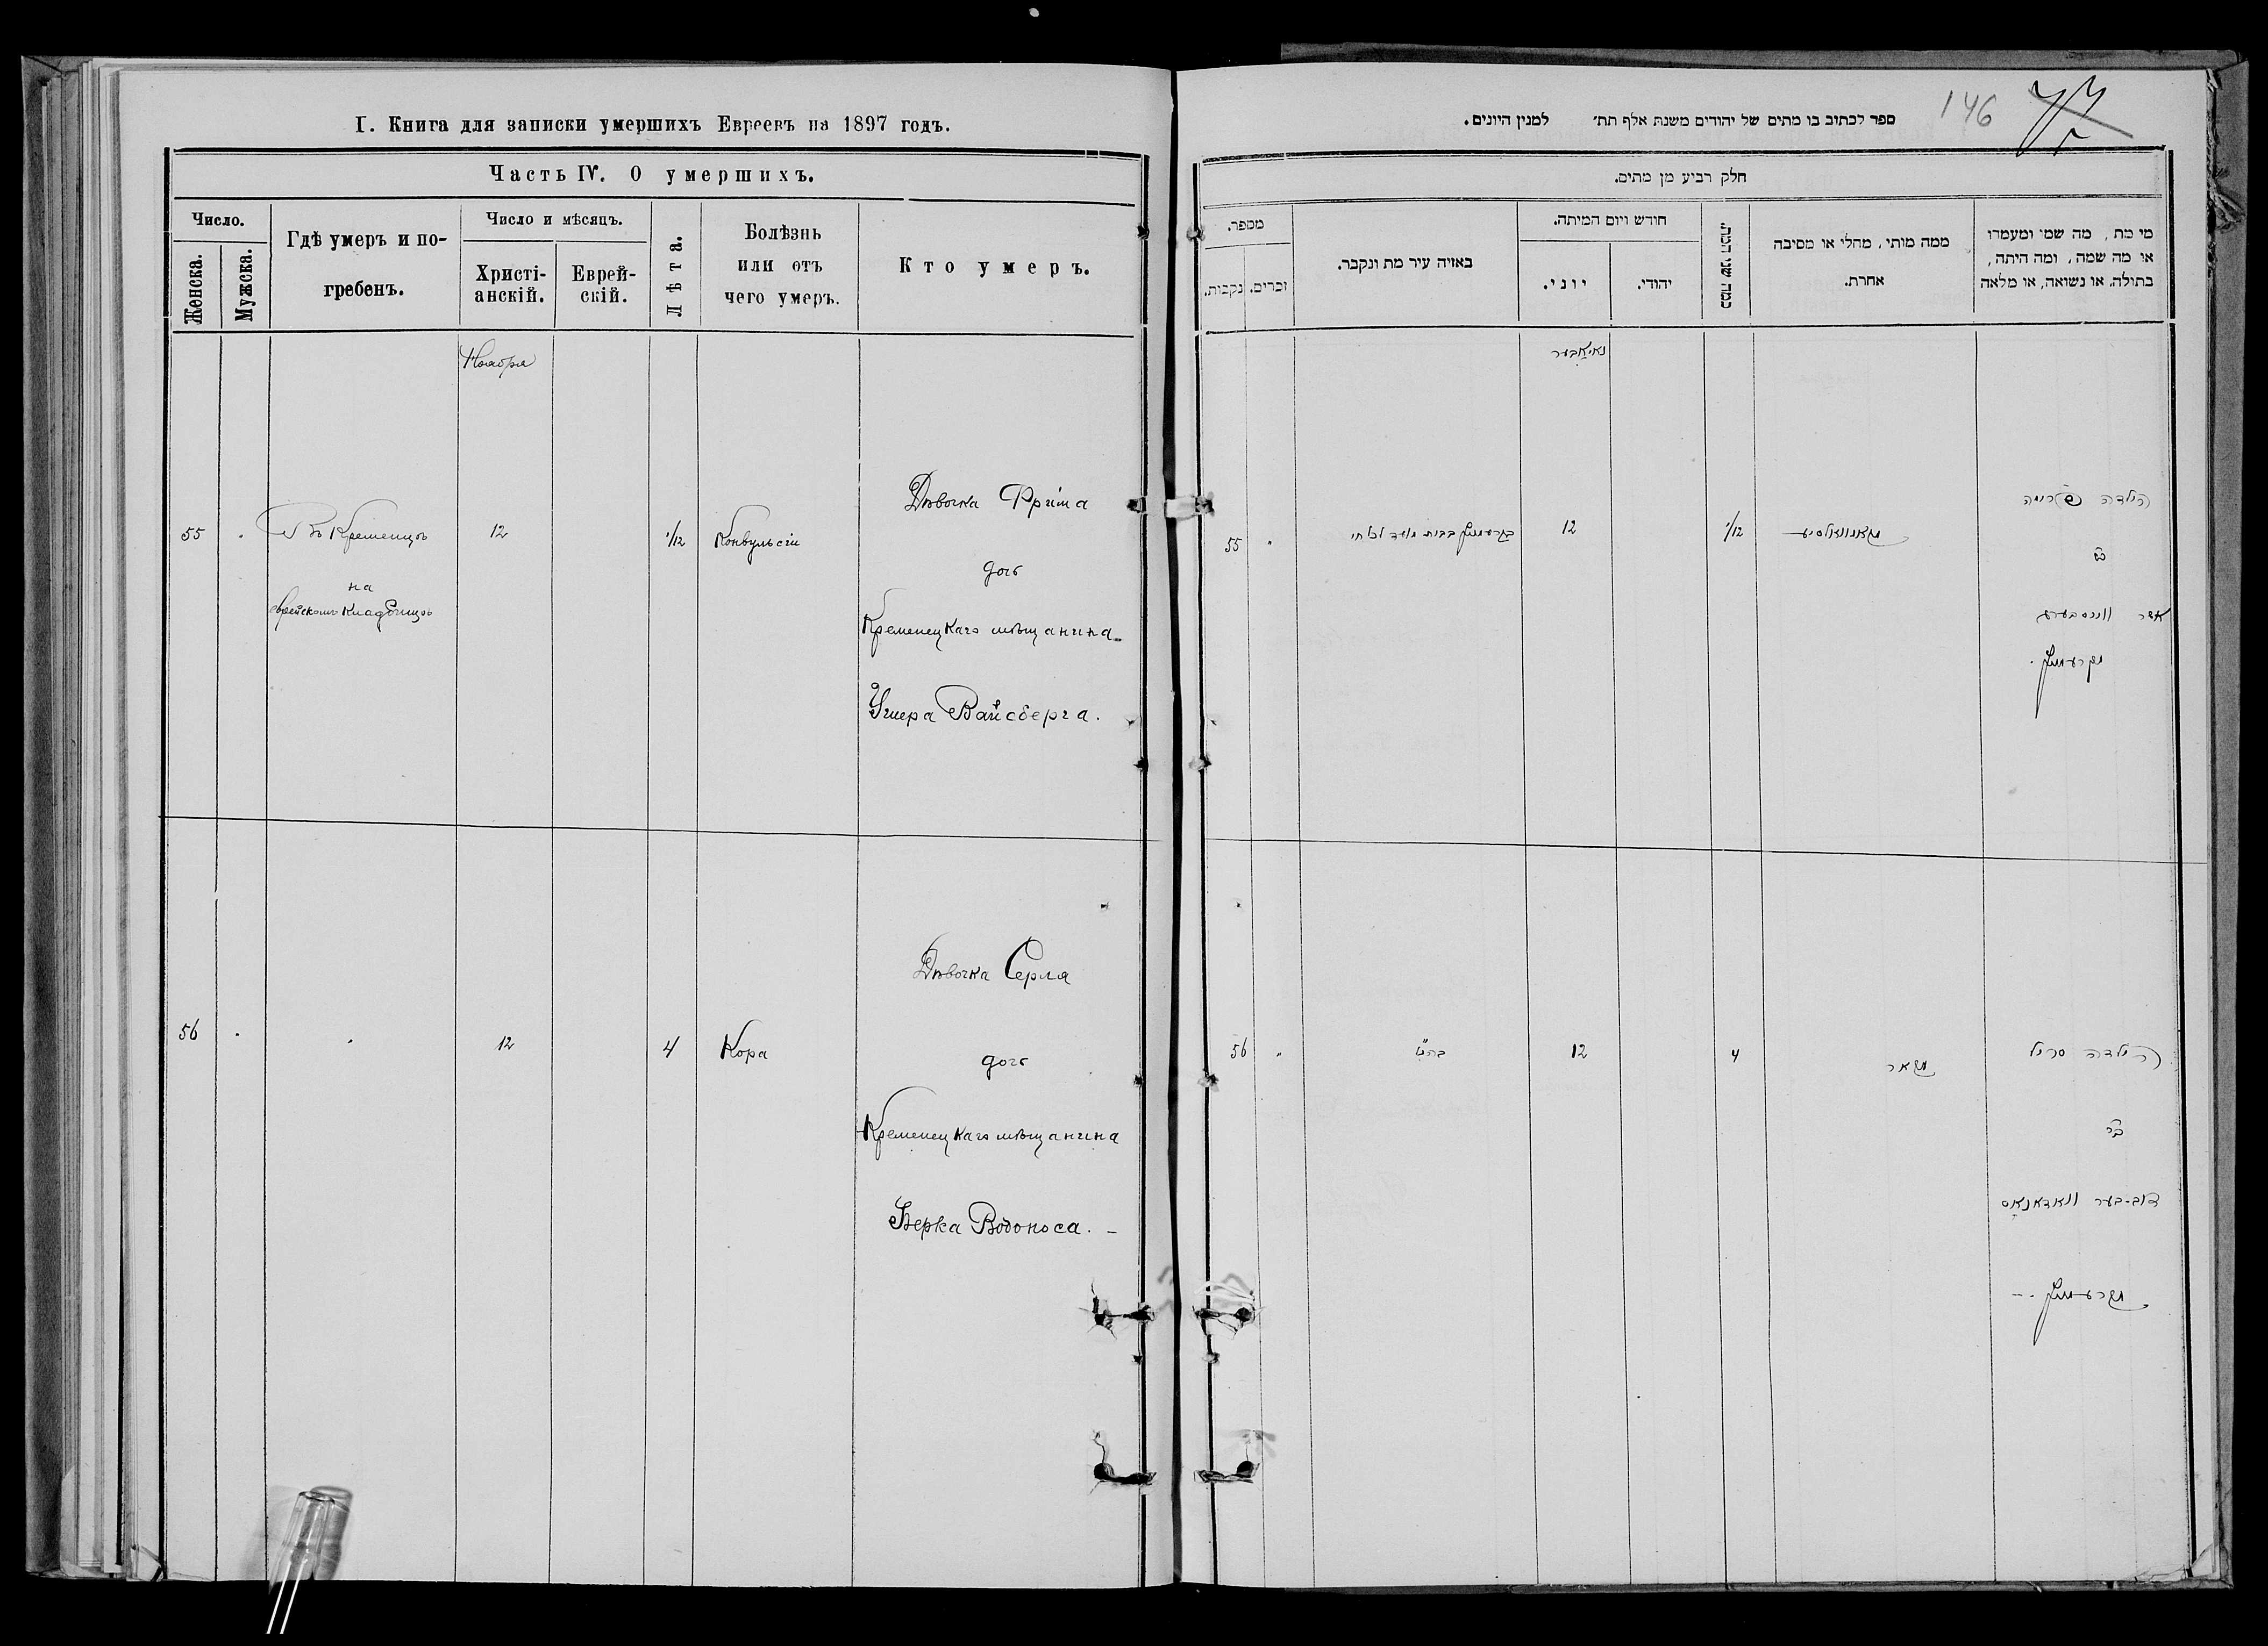 I. Книга для записки умершихъ Евреевъ на 1897 годъ.
Часть IV. О умершихъ.
Число.
Женска.
Мужска.
Гдѣ умеръ и по-
гребенъ.
Число и мѣсяцъ.
Христі-
анскій.
Еврей-
скій.
Лѣта.
Болѣзнь
или отъ
чего умеръ.
Кто умеръ.
Ноября
55
Въ Кременцѣ
на
еврейскомъ кладбищѣ
12
1/12
Конвульсіи
Дѣвочка Фрима
дочь
Кременецкаго мѣщанина
Ушера Вайсберга.
56
12
4
Кора
Дѣвочка Серля
дочь
Кременецкаго мѣщанина
Берка Водоноса. –
146
ספר לכתוב בו מתים של יהודים משנת אלף תת׳ למנין היונים.
חלק רביע מן מתים.
מספר.
נקבות.
זכרים.
באזיה עיר מת ונקבר.
חודש ויום המיתה.
יוני.
יהודי.
כמה שני המת.
ממה מותי, מחלי או מסיבה
אחרת.
מי מת, מה שמו ומעמדו
או מה שמה, ומה היתה,
בתולה, או נשואה, או מלאה
נאיאבער
55
בקרעמניץ בבית מועד לכל חי
12
1/12
קאנוואולסיע
הילדה פרימה
אשר ווייסבערג
קרעמניץ.
56
12
4
קאר
הילדה סריל
ב״ר
דוב-בער וואדאנאס
קרעמניץ. –